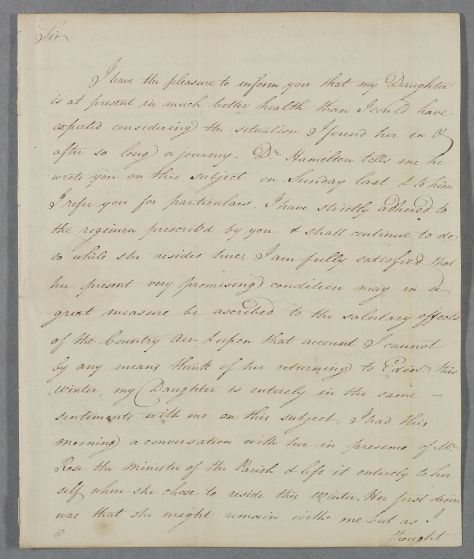 Sir
I have the pleasure to inform you that my Daughter
is at present in much better health than I could have
expected considering the situation I found her in &
after so long a journey. Dr. Hamelton tells me he
wrote you on this subject on Sunday last & to him
I refer you for particulars. I have strictly adhered to
the regimen prescribed by you & shall continue to do
so while she resides here; I am fully satisfied that
her present very promising condition may in a
great measure be ascribed to the salutary effects
of the Country Air, & upon that account I cannot
by any means think of her returning to Edinr. this
winter, my Daughter is entirely in the same
sentiments with me on this subject. I had this
morning a conversation with her in presence of Mr.
Rose the Minister of the Parish & left it entirely to her
self where she chose to reside this winter. Her first
was that she might remain with me but as I
thought